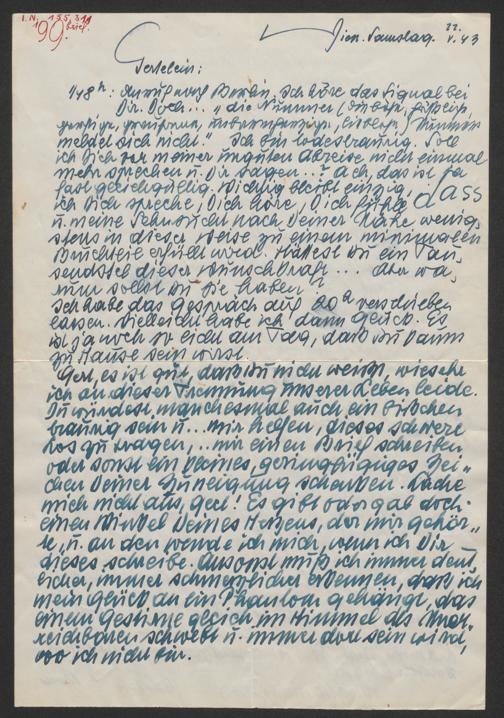 I.N. 135.311
190. Brief.
Wien. Samstag. 22. V. 43
Gerlein:
1/4 8h: Anruf nach Berlin. Ich höre das Signal bei
Dir. Doch... „die Nummer (
Nummer
meldet sich nicht!" Ich bin todestraurig. Soll
ich Dich vor meiner Abreise nicht einmal
mehr sprechen u. Dir sagen..? Ach, das ist ja
fast gleichgültig. Wichtig bleibt einzig, dass
ich Dich spreche, Dich höre, Dich fühle
u. meine Sehnsucht nach Deiner Nähe wenig-
stens in dieser Weise zu einem minimalen
Bruchteile erfüllt wird. Hättest Du ein Tau-
sendstel dieser Wunschkraft... Aber wa-
rum sollst Du sie haben?
Ich habe das Gespräch auf 20h verschieben
lassen. Vielleicht habe ich dann Glück. Es
ist ja noch zu licht am Tag, dass Du kaum
zu Hause sein wirst.
Gerl, es ist gut, dass Du nicht weisst, wie sehr
ich an dieser Trennung unserer Leben leide.
Du würdest manchesmal auch ein bisschen
traurig sein u... mir helfen, dieses schwere
Los zu tragen, .. mir einen Brief schreiben
oder sonst ein kleines, geringfügiges Zei-
chen Deiner Zuneigung schenken. Lache
mich nicht aus, Gerl! Es gibt oder gab doch
einen Winkel Deines Herzens, der mir gehör-
te, u. an den wende ich mich, wenn ich Dir
dieses schreibe. Ansonst muss ich immer deut-
licher, immer schmerzlicher erkennen, dass ich
mein Glück an ein Phantom gehängt, das
einem Gestirne gleich, im Himmel als Uner-
reichbares schwebt u. immer dort sein wird,
wo ich nicht bin.